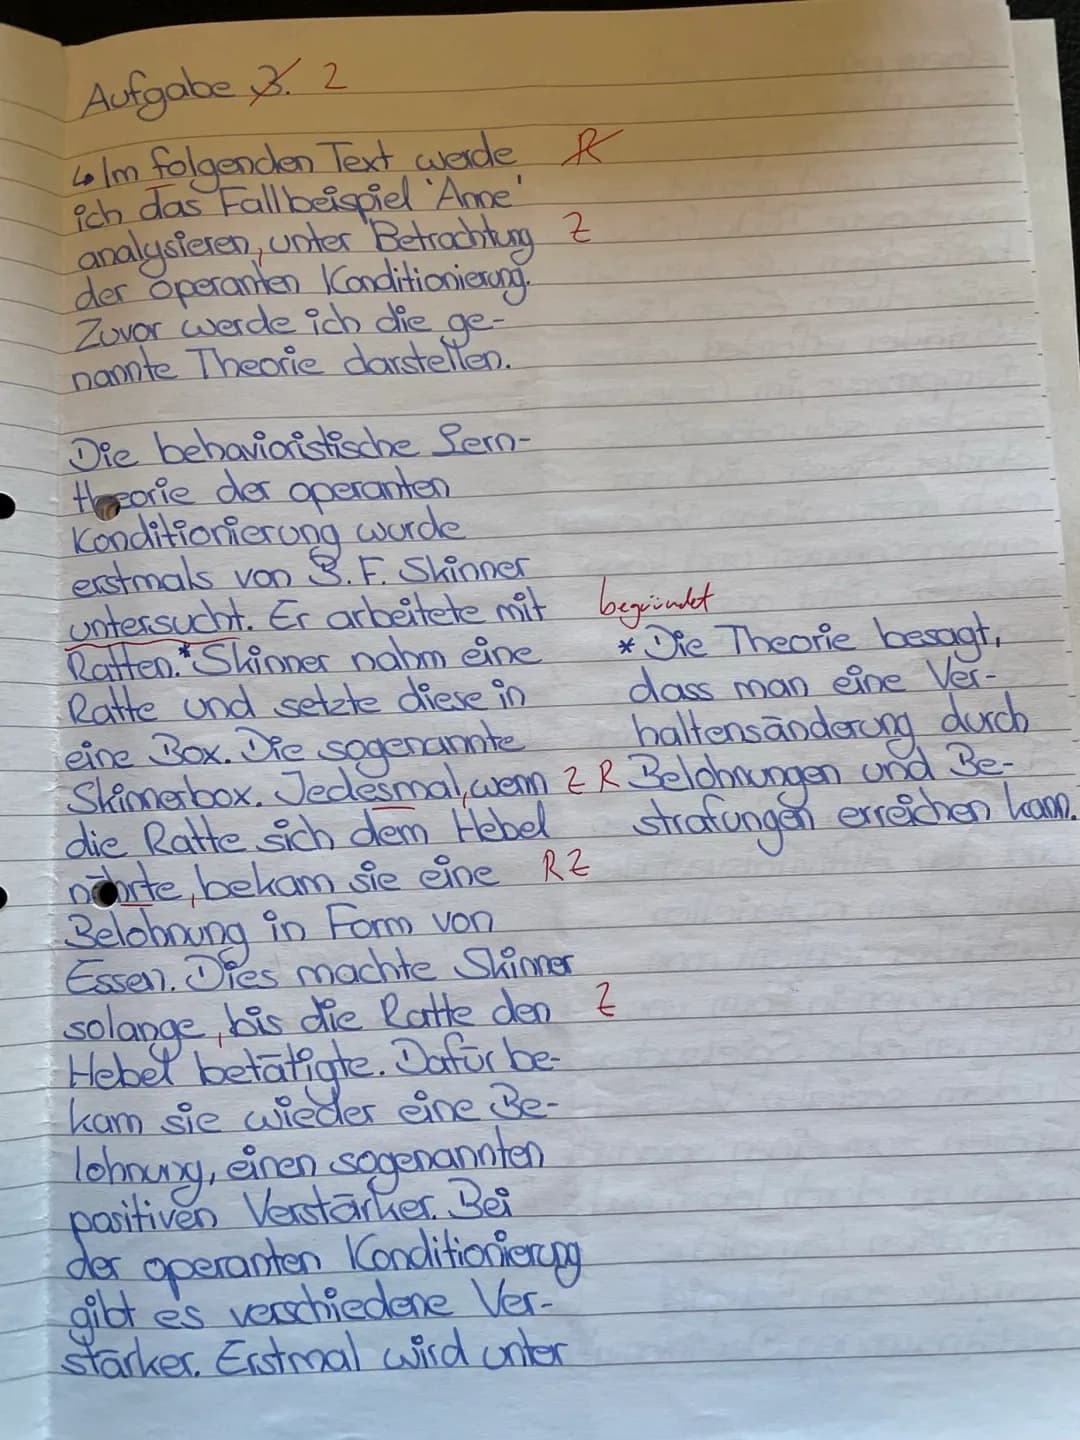 Aufgabe 3. 2
↳ Im folgenden Text werde R
ich das Fallbeispiel 'Anne'
analysieren, unter Betrachtung Z
der operanten Konditionierung.
Zuvor werde ich die ge-
nannte Theorie darstellen.
Die behavioristische Lern-
theorie der operanten
Konditionierung wurde
erstmals von B.F. Skinner
untersucht. Er arbeitete mit
Ratten.* Skinner nahm eine
Ratte und setzte diese in
eine Box. Die sogenannte
Skinnerbox. Jedesmal, wenn Z R
die Ratte sich dem Hebel
näherte, bekam sie eine R Z
Belohnung in Form von
Essen. Dies machte Skinner
solange, bis die Ratte den Z
Hebel betätigte. Dafür be-
kam sie wieder eine Be-
lohnung, einen sogenannten
positiven Verstärker. Bei
der operanten Konditionierung
gibt es verschiedene Ver-
stärker. Erstmal wird unter
begründet
* Die Theorie besagt,
dass man eine Ver-
haltensänderung durch
Belohnungen und Be-
strafungen erreichen kann.